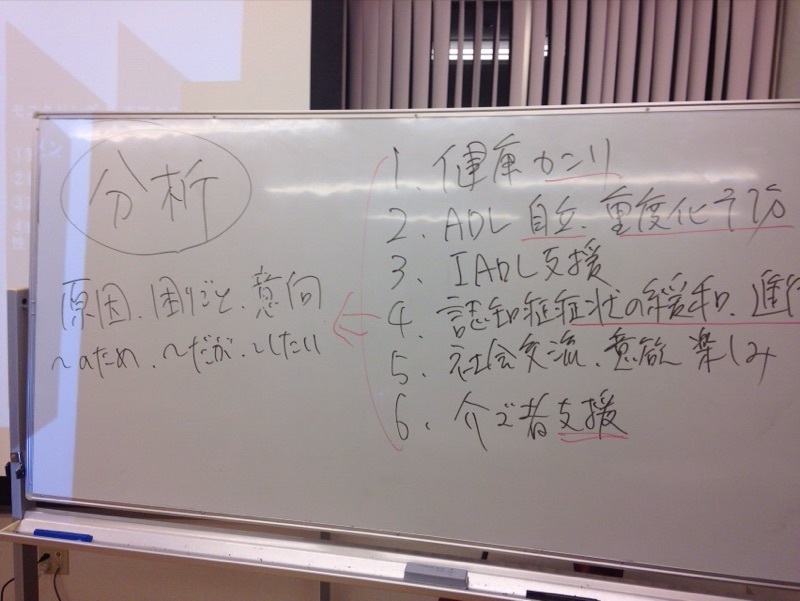 分析
原因、困りごと、意向
〜のため、〜だが、〜したい
1、健康カンリ
2、ADL 自立、重度化予防
3、IADL支援
4、認知症症状の緩和、進行
5、社会交流、意欲 楽しみ
6、介ゴ者支援